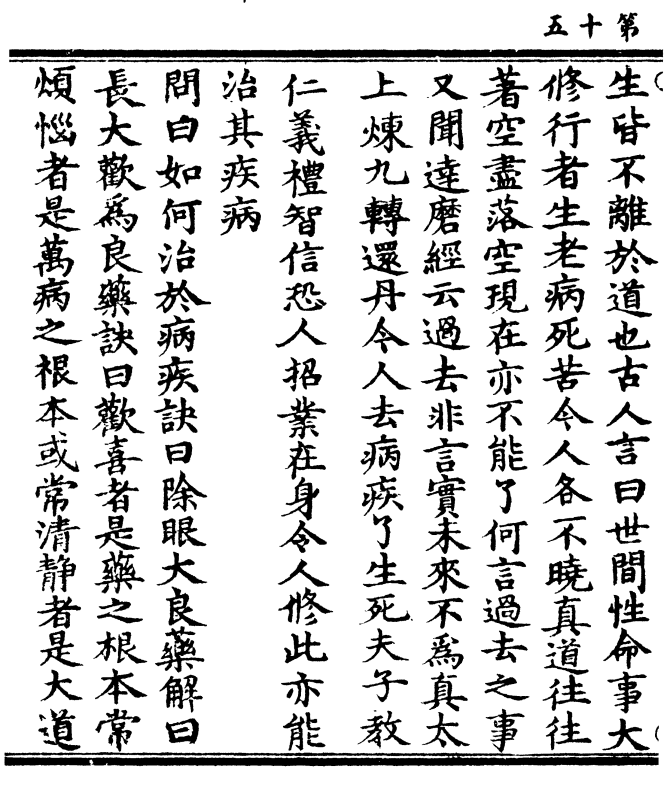 第十五
生皆不離於道也古人言曰世間性命事大
修行者生老病死苦今人各不曉真道往往
著空盡落空現在亦不能了何言過去之事
又聞達磨經云過去非言實未來不爲真太
上煉九轉還丹令人去病疾了生死夫子教
仁義禮智信恐人招業在身令人修此亦能
治其疾病
問曰如何治於病疾訣曰除眼大良藥解曰
長大歡爲良藥訣曰歡喜者是藥之根本常
煩惱者是萬病之根本或常清静者是大道